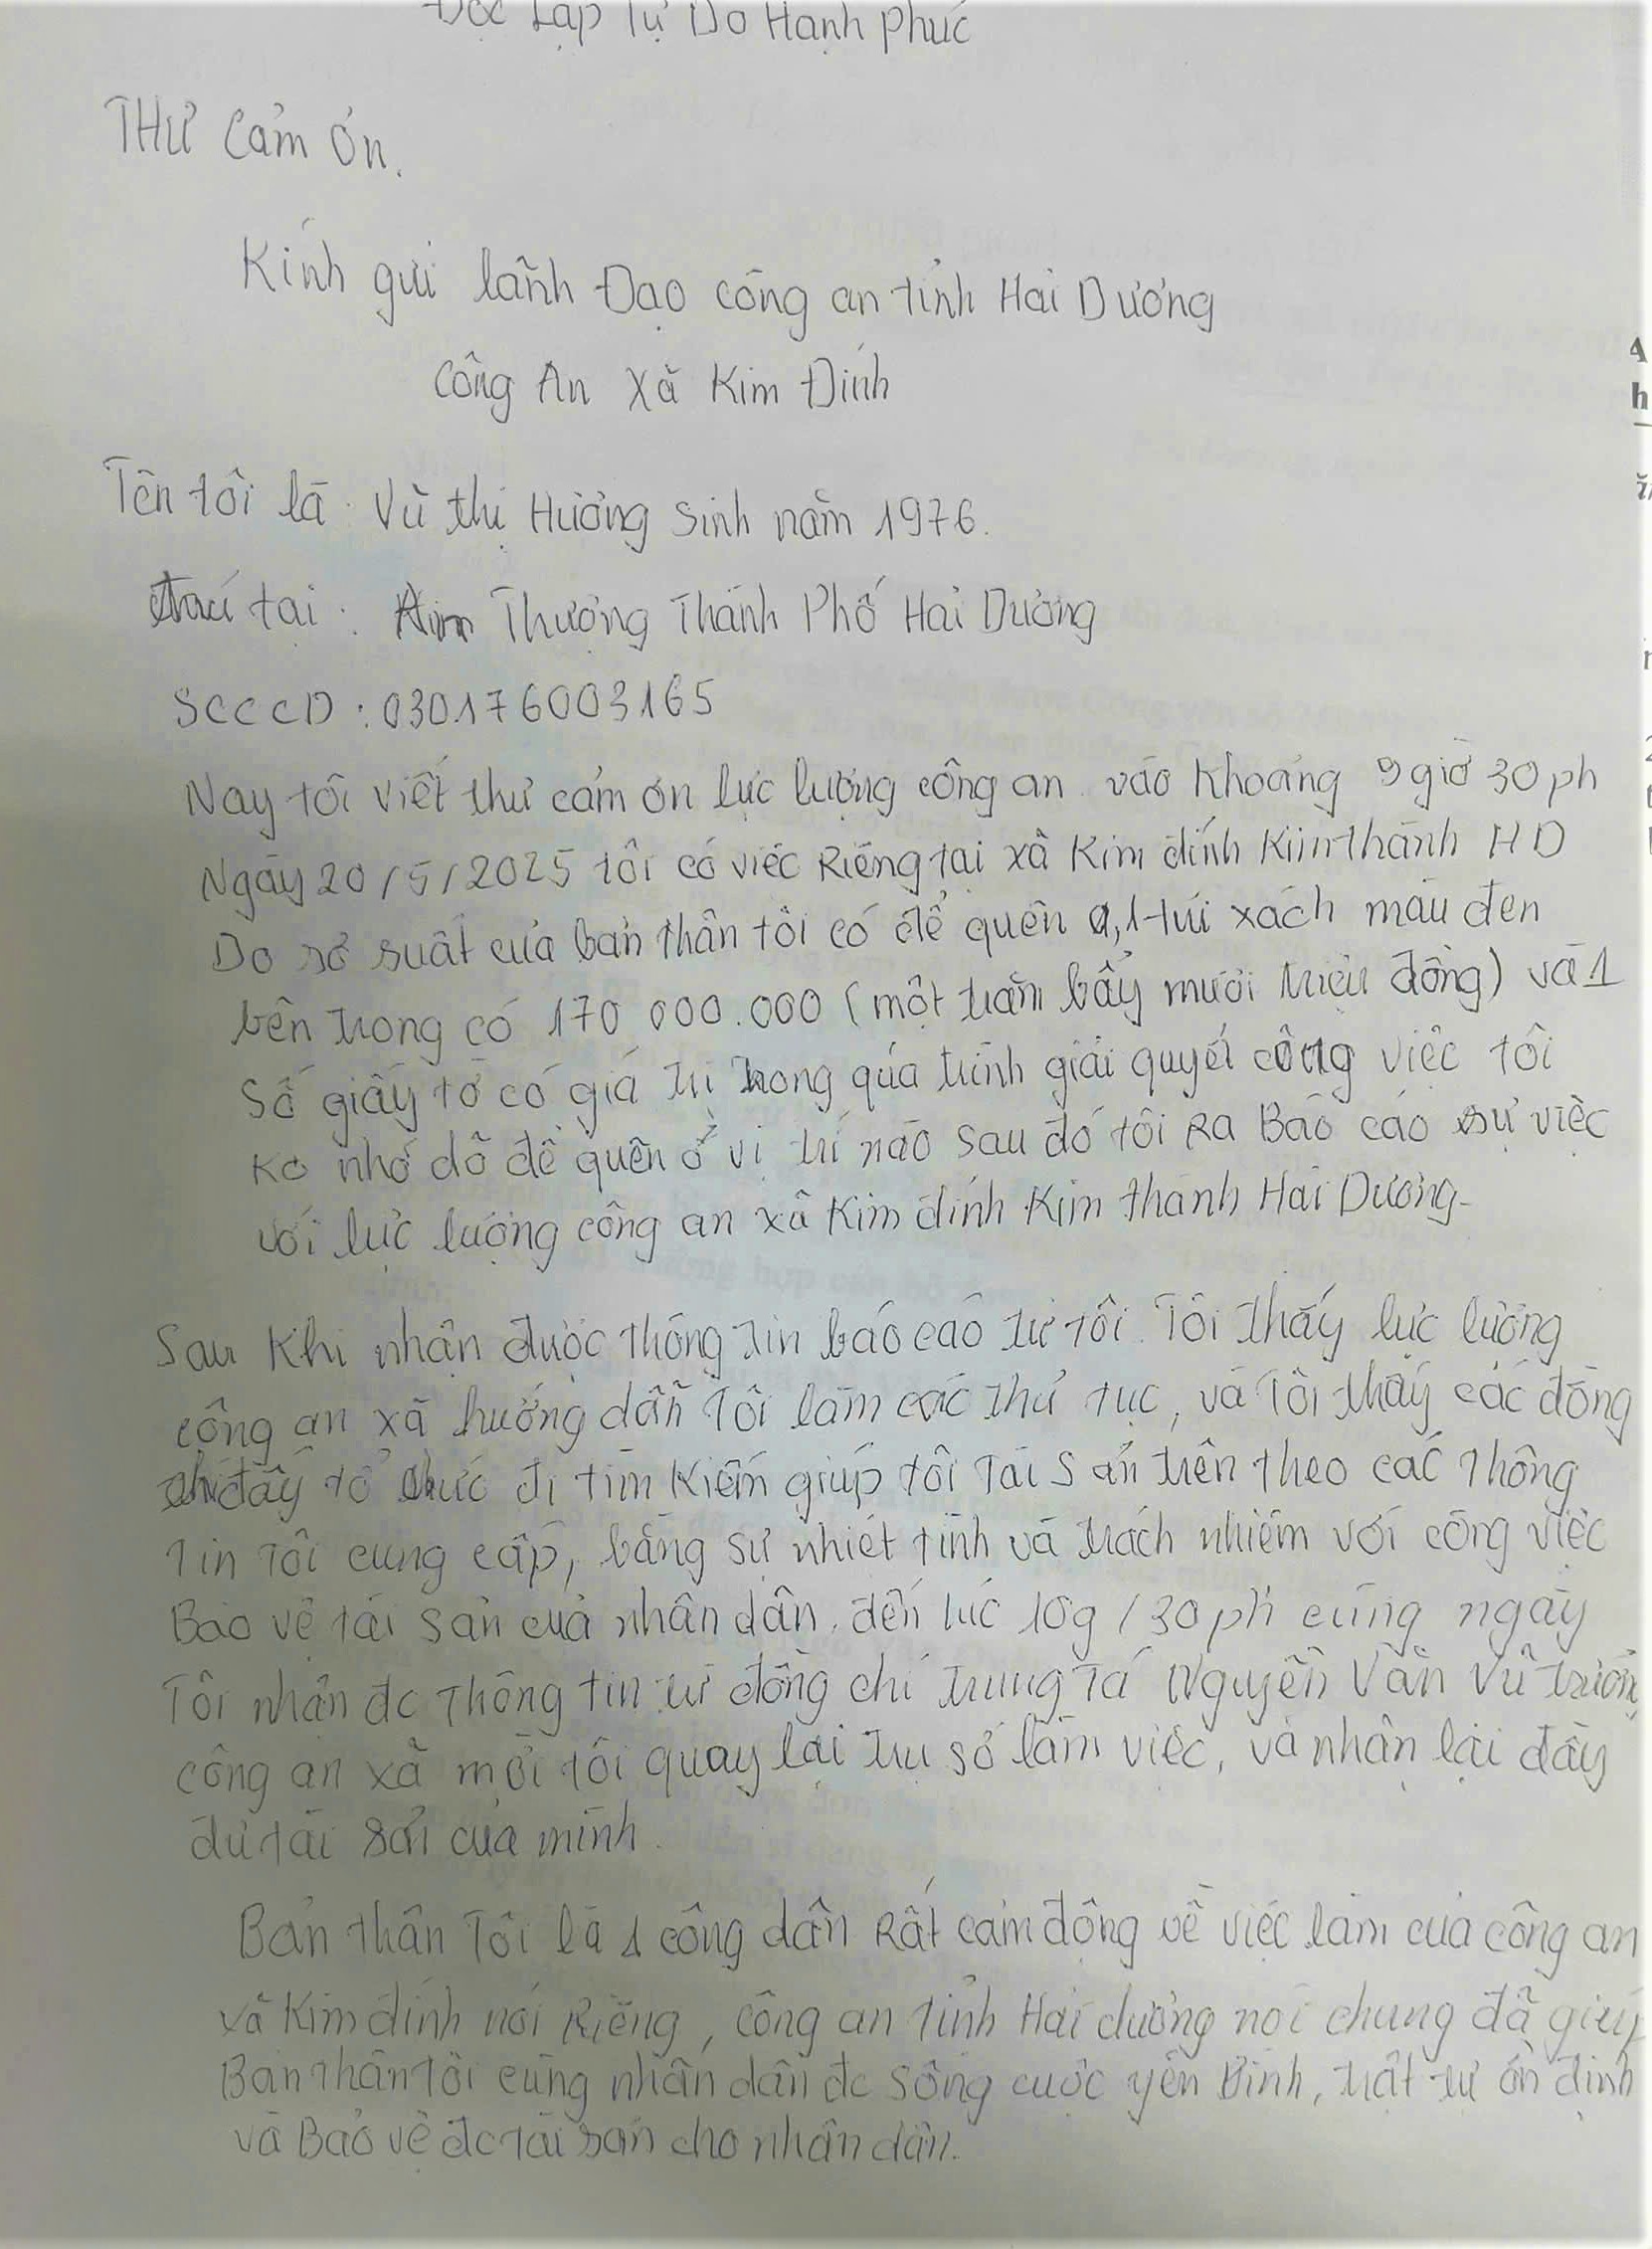 Độc Lập Tự Do Hạnh phúc
THƯ Cảm Ơn.
Kính gửi lãnh Đạo công an tỉnh Hải Dương
Công An Xã Kim Đính
Tên tôi là: Vũ thị Hường Sinh năm 1976.
trú tại: Thượng Thành Phố Hải Dương
SCCCD: 030176003165
Nay tôi viết thư cảm ơn lực lượng công an vào khoảng 9 giờ 30 ph
Ngày 20/5/2025 tôi có việc Riêng tại xã Kim đính Kim thành HD
Do sơ suất của bản thân tôi có để quên 1 túi xách màu đen
bên trong có 170 000.000 (một trăm bẩy mươi triệu đồng) và 1
Số giấy tờ có giá trị trong quá trình giải quyết công việc tôi
Ko nhớ dõ để quên ở vị trí nào sau đó tôi Ra Báo cáo sự việc
với lực lượng công an xã Kim đính Kim thành Hải Dương-
Sau Khi nhận được thông tin báo cáo từ tôi. Tôi thấy lực lượng
công an xã hướng dẫn Tôi làm các thủ tục, và Tôi thấy các đồng
chí đấy tổ chức đi tìm Kiếm giúp tôi Tài Sản trên theo các Thông
Tin Tôi cung cấp, bằng sự nhiệt tình và trách nhiệm với công việc
Bảo vệ tài sản của nhân dân, đến lúc 10g/30 ph cùng ngày
Tôi nhận đc Thông tin từ đồng chí trung Tá Nguyễn Văn Vũ trưởng
công an xã mời tôi quay lại trụ sở làm việc, và nhận lại đầy
đủ tài sản của mình.
Bản thân Tôi là 1 công dân Rất cảm động về việc làm của công an
xã Kim đính nói Riêng, công an tỉnh Hải dương nói chung đã giúp
Bản thân tôi cùng nhân dân đc sống cuộc yên Bình, trật tự ổn định
và Bảo vệ đc tài sản cho nhân dân.